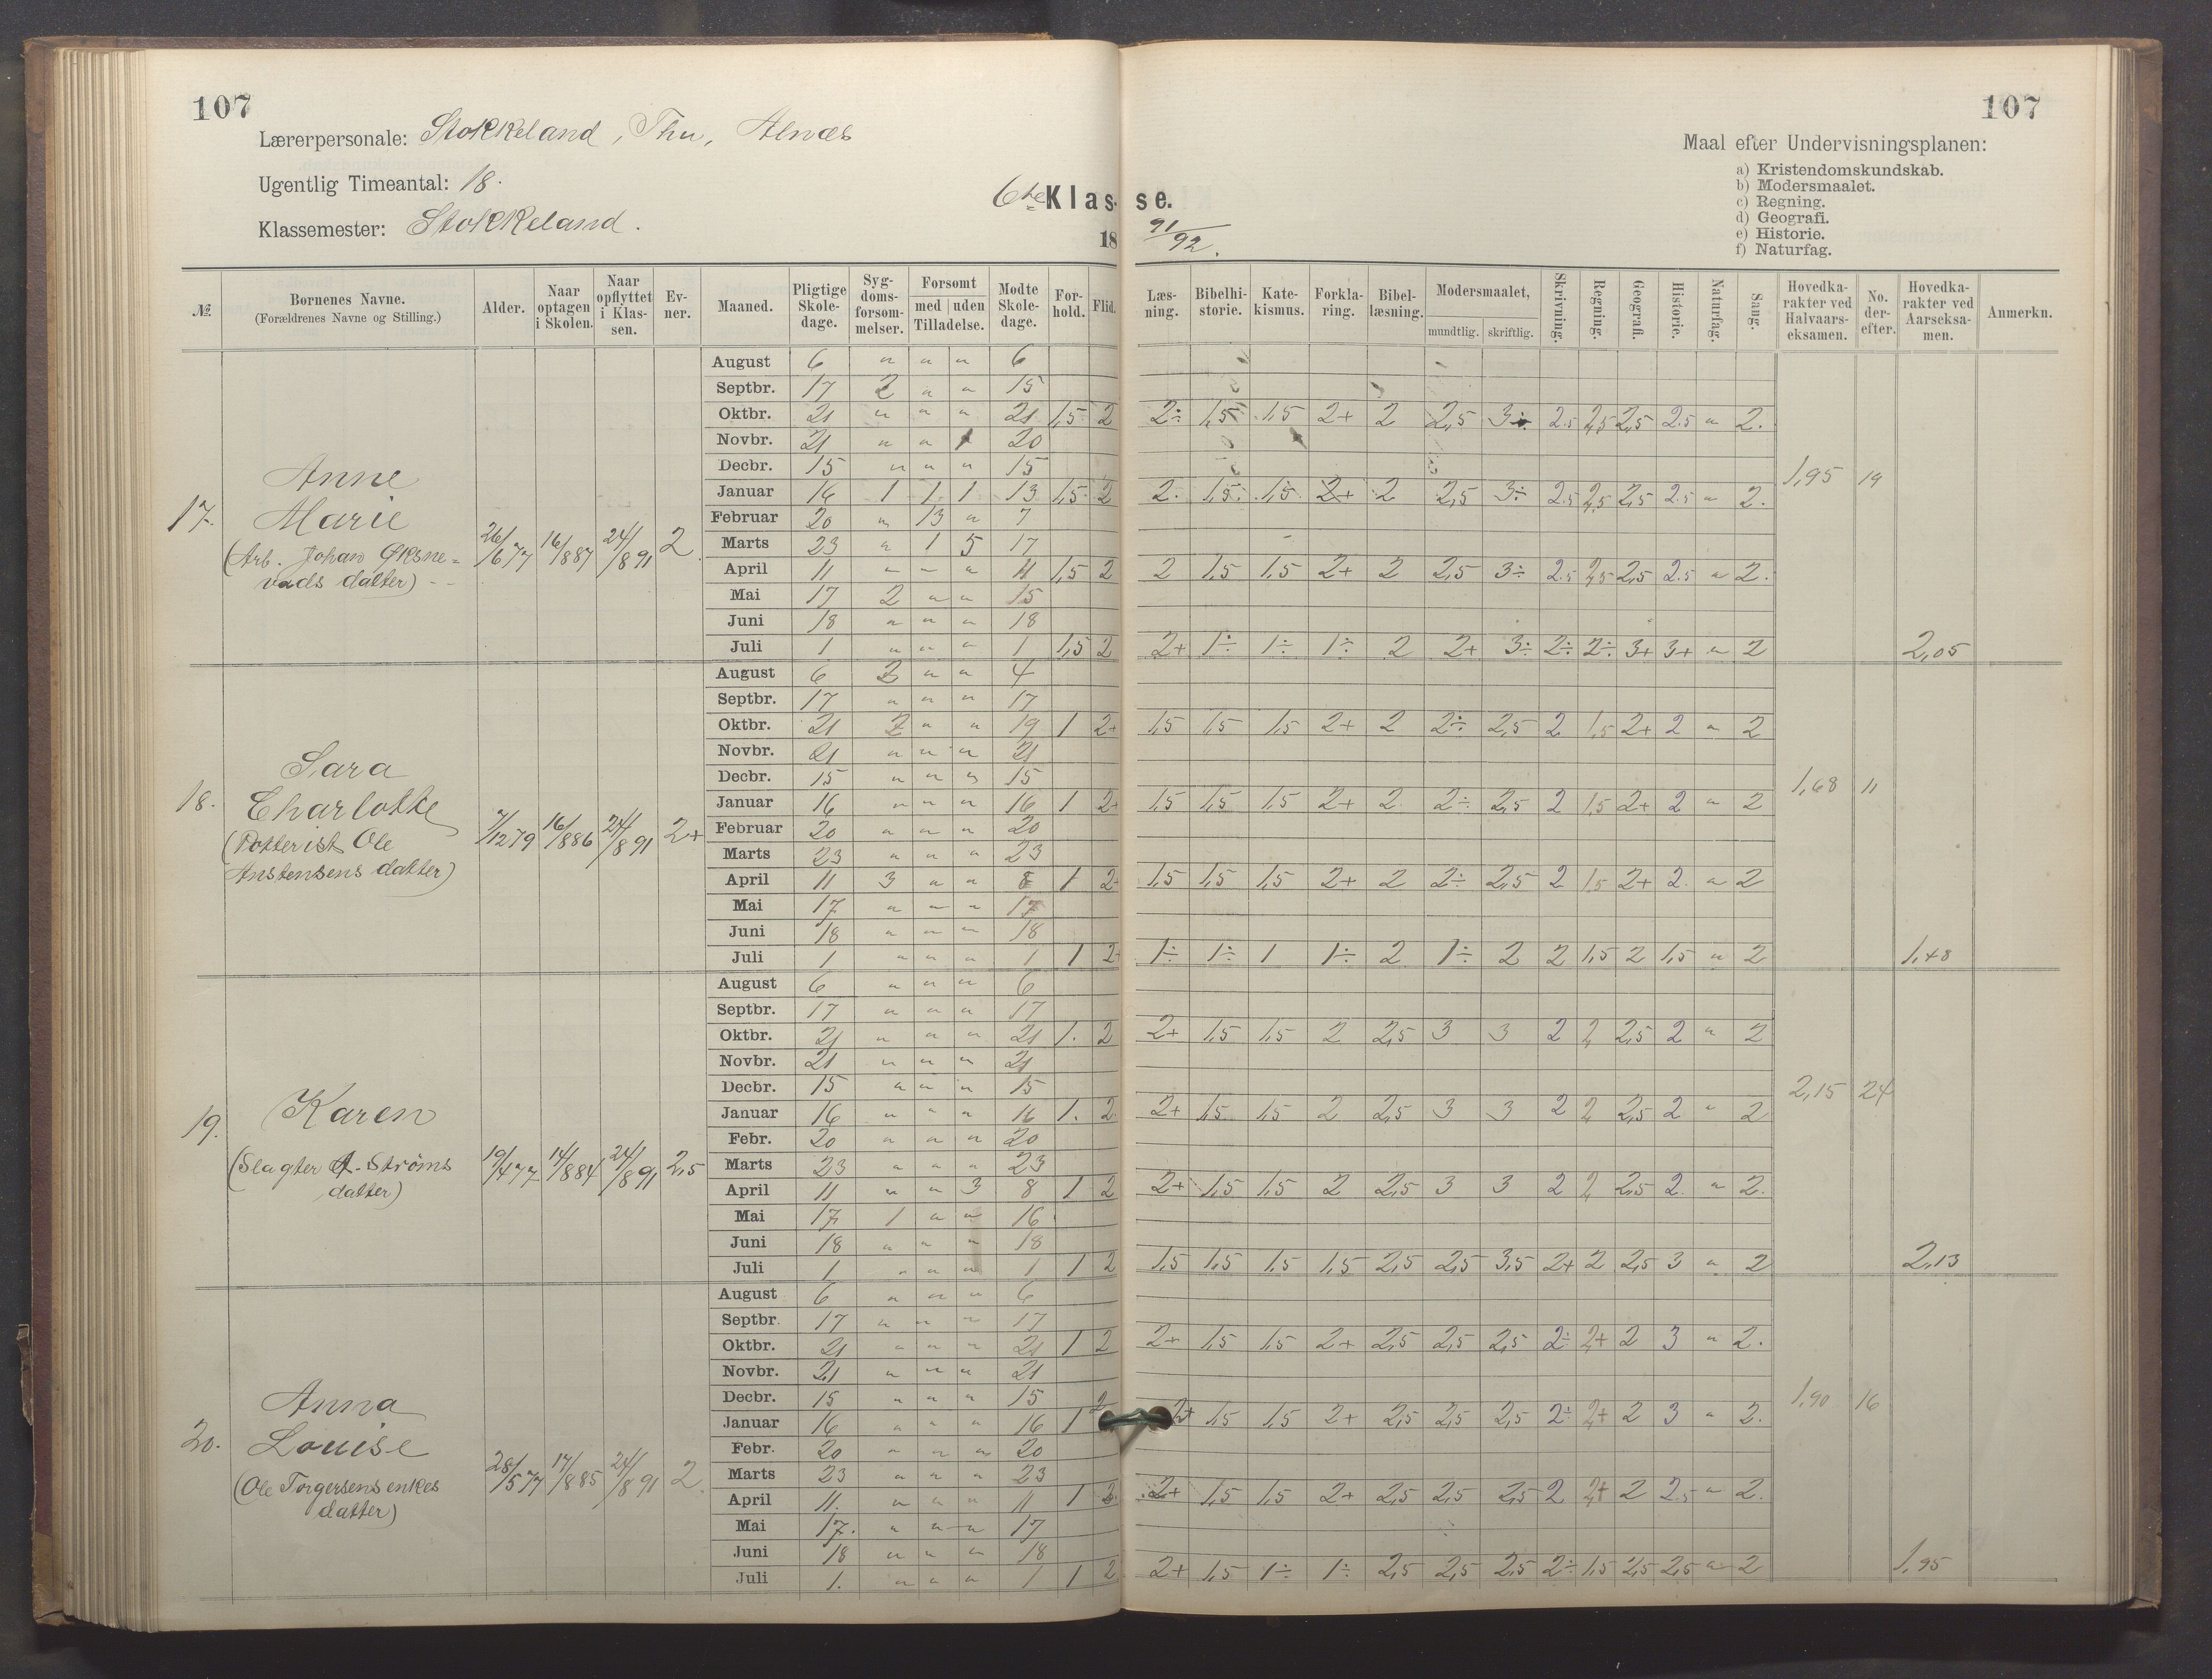 107
107
Lærerpersonale: Stokkeland, Thu, Alnæs
Ugentlig Timeantal: 18.
Klassemester: Stokkeland.
6te Klasse.
18 91/92.
Maal efter Undervisningsplanen:
a) Kristendomskundskab.
b) Modersmaalet.
c) Regning.
d) Geografi.
e) Historie.
f) Naturfag.
№ | Bornenes Navne. (Forældrenes Navne og Stilling.) | Alder. | Naar optagen i Skolen. | Naar opflyttet i Klassen. | Evner. | Maaned. | Pligtige Skoledage. | Sygdomsforsømmelser. | Forsømt med Tilladelse. | uden Tilladelse. | Mødte Skoledage. | Forhold. | Flid. | Læsning. | Bibelhistorie. | Katekismus. | Forklaring. | Bibellæsning. | Modersmaalet, mundtlig. | skriftlig. | Skrivning. | Regning. | Geografi. | Historie. | Naturfag. | Sang. | Hovedkarakter ved Halvaarseksamen. | No. derefter. | Hovedkarakter ved Aarseksamen. | Anmerkn.
17. Anne Marie (Arb. Johan Øksnevads datter) 26/6 77 16/8 87 24/8 91 2.
August 6 " " " 6
Septbr. 17 2 " " 15
Oktbr. 21 " " " 21 1,5 2 2÷ 1,5 1,5 2+ 2 2,5 3÷ 2.5 2,5 2,5 2.5 " 2.
Novbr. 21 " " 1 20
Decbr. 15 " " " 15
1,95 19
Januar 16 1 1 1 13 1,5 2 2. 1,5 1,5 2+ 2 2,5 3÷ 2.5 2,5 2,5 2.5 " 2.
Februar 20 " 13 " 7
Marts 23 " 1 5 17
April 11 " " " 11 1,5 2 2 1,5 1,5 2+ 2 2,5 3÷ 2.5 2,5 2,5 2.5 " 2.
Mai 17 2 " " 15
Juni 18 " " " 18
Juli 1 " " " 1 1,5 2 2+ 1÷ 1÷ 1÷ 2 2+ 3÷ 2÷ 2÷ 3+ 3+ " 2 2,05
18. Sara Charlotte (Potterist Ole Anstensens datter) 7/12 79 16/8 86 24/8 91 2+
August 6 2 " " 4
Septbr. 17 " " " 17
Oktbr. 21 2 " " 19 1 2+ 1,5 1,5 1,5 2+ 2 2÷ 2,5 2 1,5 2+ 2 " 2
Novbr. 21 " " " 21
Decbr. 15 " " " 15
1,68 11
Januar 16 " " " 16 1 2+ 1,5 1,5 1,5 2+ 2 2÷ 2,5 2 1,5 2+ 2 " 2
Februar 20 " " " 20
Marts 23 " " " 23
April 11 3 " " 8 1 2+ 1,5 1,5 1,5 2+ 2 2÷ 2,5 2 1,5 2+ 2. " 2
Mai 17 " " " 17
Juni 18 " " " 18
Juli 1 " " " 1 1 2+ 1÷ 1÷ 1 1÷ 2 1÷ 2 2 1,5 2 1,5 " 2 1,48
19. Karen (Slagter A. Strøms datter) 19/4 77 14/8 84 24/8 91 2,5
August 6 " " " 6
Septbr. 17 " " " 17
Oktbr. 21 " " " 21 1. 2 2+ 1,5 1,5 2 2,5 3 3 2 2 2,5 2 " 2
Novbr. 21 " " " 21
Decbr. 15 " " " 15
2,15 24
Januar 16 " " " 16 1. 2 2+ 1,5 1,5 2 2,5 3 3 2 2 2,5 2 " 2
Febr. 20 " " " 20
Marts 23 " " " 23
April 11 " " 3 8 1 2 2+ 1,5 1,5 2 2,5 3 3 2 2 2,5 2. " 2.
Mai 17 1 " " 16
Juni 18 " " " 18
Juli 1 " " " 1 1 2 1,5 1,5 1,5 1,5 2,5 2,5 3,5 2+ 2 2,5 3 " 2 2,13
20. Anna Louise (Ole Torgersens enkes datter) 28/5 77 17/8 85 24/8 91 2.
August 6 " " " 6
Septbr. 17 " " " 17
Oktbr. 21 " " " 21 1 2 2+ 1,5 1,5 2+ 2,5 2,5 2,5 2÷ 2+ 2 3 " 2.
Novbr. 21 " " " 21
Decbr. 15 " " " 15
1,90 16
Januar 16 " " " 16 1 2 2+ 1,5 1,5 2+ 2,5 2,5 2,5 2÷ 2+ 2 3 " 2.
Febr. 20 " " " 20
Marts 23 " " " 23
April 11. " " " 11 1 2. 2+ 1,5 1,5 2+ 2,5 2,5 2,5 2 2+ 2 2.5 " 2.
Mai 17. " " " 17
Juni 18 " " " 18
Juli 1. " " " 1 1 2 2+ 1,5 1÷ 1÷ 2,5 2,5 2,5 2÷ 1,5 2,5 2,5 " 2 1,95